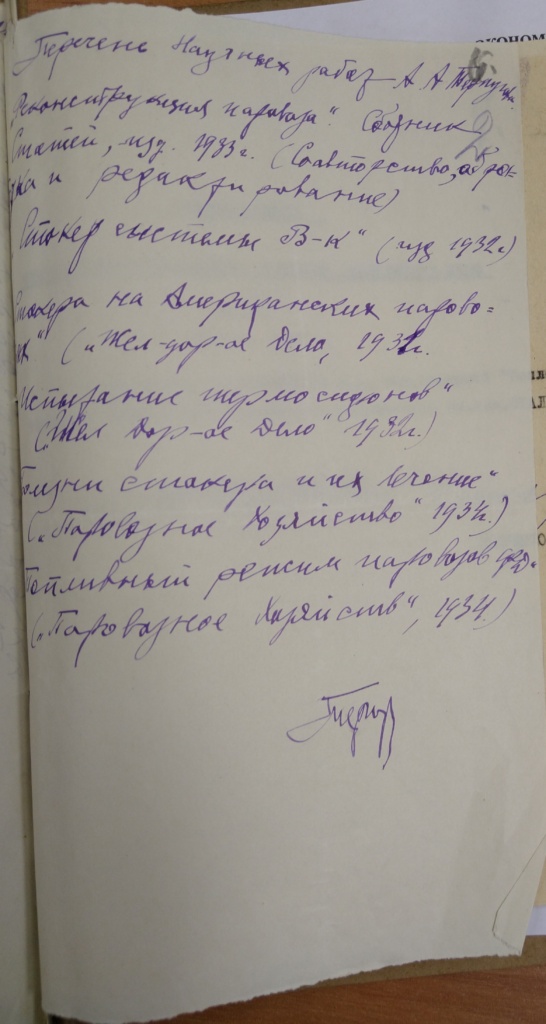 Перечень Научных работ А А
"Реконструкция паровоза". Сборник
Статей, изд. 1933 г. (Соавторство,
и редактирование)
Стокер системы В-К" (изд 1932 г.)
Стокера на Американских парово=
зах" („Жел-дор-ое Дело, 1932 г.
Испытание термосифонов"
(„Жел Дор-ое Дело" 1932 г.)
Болезни стокера и их лечение"
(„Паровозное Хозяйство" 1934 г.)
Топливный режим паровозов ФД"
(„Паровозное Хозяйств", 1934.)
эконом